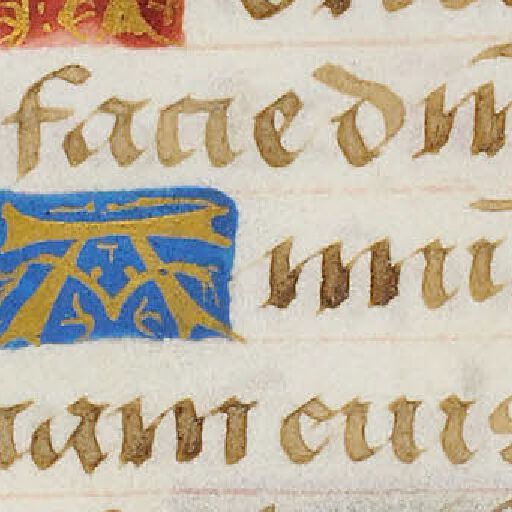 facie dn̄
Annū
iam eius